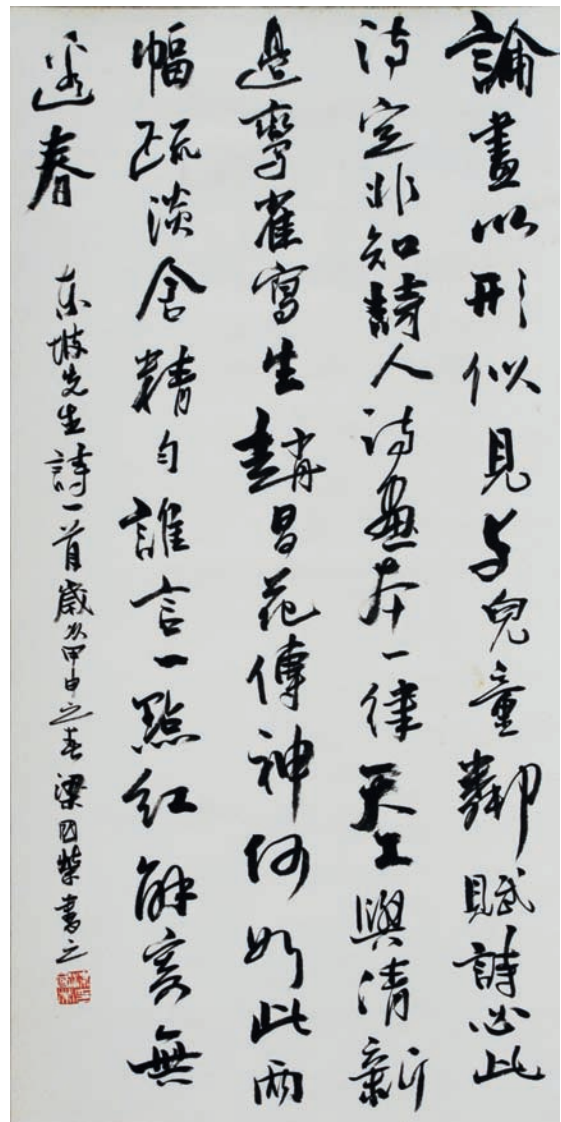 論畫以形似見与兒童鄰賦詩必此
詩定非知詩人詩畫本一律天工與清新
邊鸞雀寫生趙昌花傳神何如此兩
幅疏淡含精匀誰言一點紅解寄無
邊春
东坡先生詩一首歲次甲申之春梁国書之